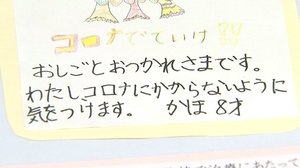 コロナでていけ!!
おしごとおつかれさまです。
わたしコロナにかからないように
気をつけます。 かほ 8才
治療にあたって